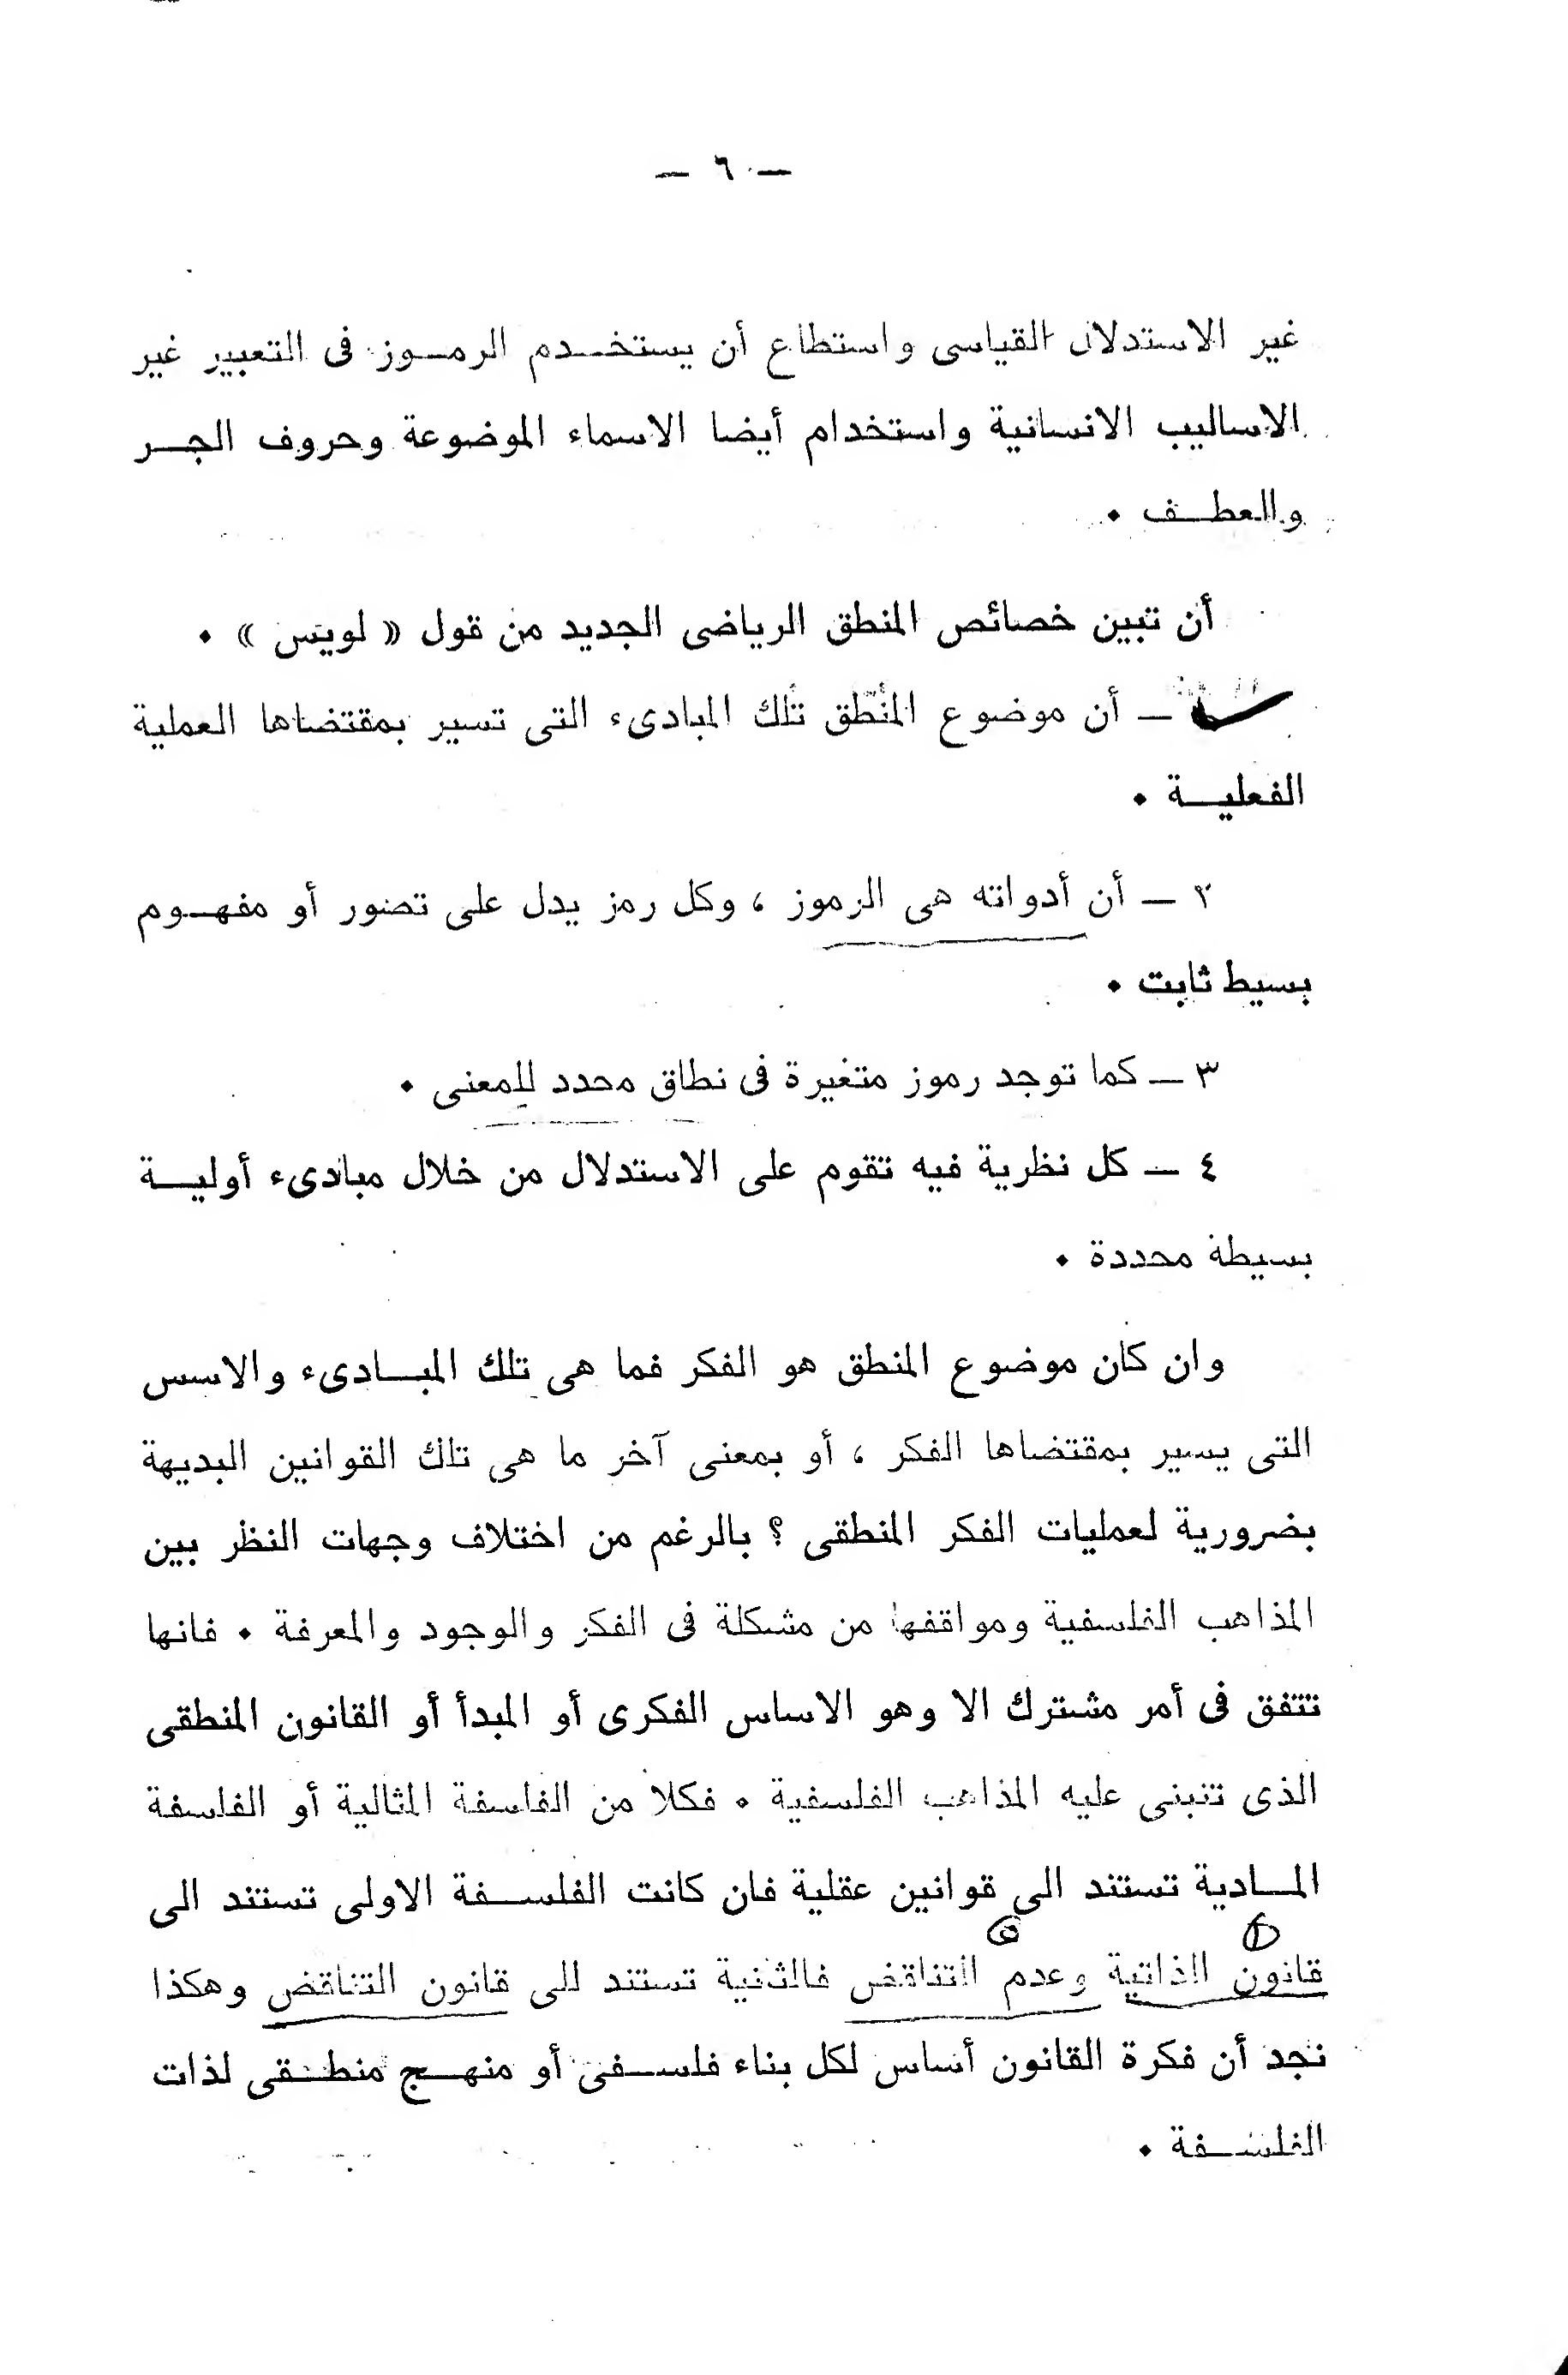 — ٦ —
غير الاستدلال القياسى واستطاع أن يستخدم الرموز فى التعبير غير
الاساليب الانسانية واستخدام أيضا الاسماء الموضوعة وحروف الجر
والعطف ٠
أن تبين خصائص المنطق الرياضى الجديد من قول « لويس » ٠
— أن موضوع المنطق تلك المبادىء التى تسير بمقتضاها العملية
الفعلية ٠
٢ — أن أدواته هى الرموز ، وكل رمز يدل على تصور أو مفهوم
بسيط ثابت ٠
٣ — كما توجد رموز متغيرة فى نطاق محدد للمعنى ٠
٤ — كل نظرية فيه تقوم على الاستدلال من خلال مبادىء أولية
بسيطة محددة ٠
وان كان موضوع المنطق هو الفكر فما هى تلك المبادىء والاسس
التى يسير بمقتضاها الفكر ، أو بمعنى آخر ما هى تلك القوانين البديهة
بضرورية لعمليات الفكر المنطقى ؟ بالرغم من اختلاف وجهات النظر بين
المذاهب الفلسفية ومواقفها من مشكلة فى الفكر والوجود والمعرفة ٠ فانها
تتفق فى أمر مشترك الا وهو الاساس الفكرى أو المبدأ أو القانون المنطقى
الذى تنبنى عليه المذاهب الفلسفية ٠ فكلا من الفلسفة المثالية أو الفلسفة
المادية تستند الى قوانين عقلية فان كانت الفلسفة الاولى تستند الى
قانون الذاتية وعدم التناقض فالثنية تستند للى قانون التناقض وهكذا
نجد أن فكرة القانون أساس لكل بناء فلسفى أو منهج منطقى لذات
الفلسفة ٠